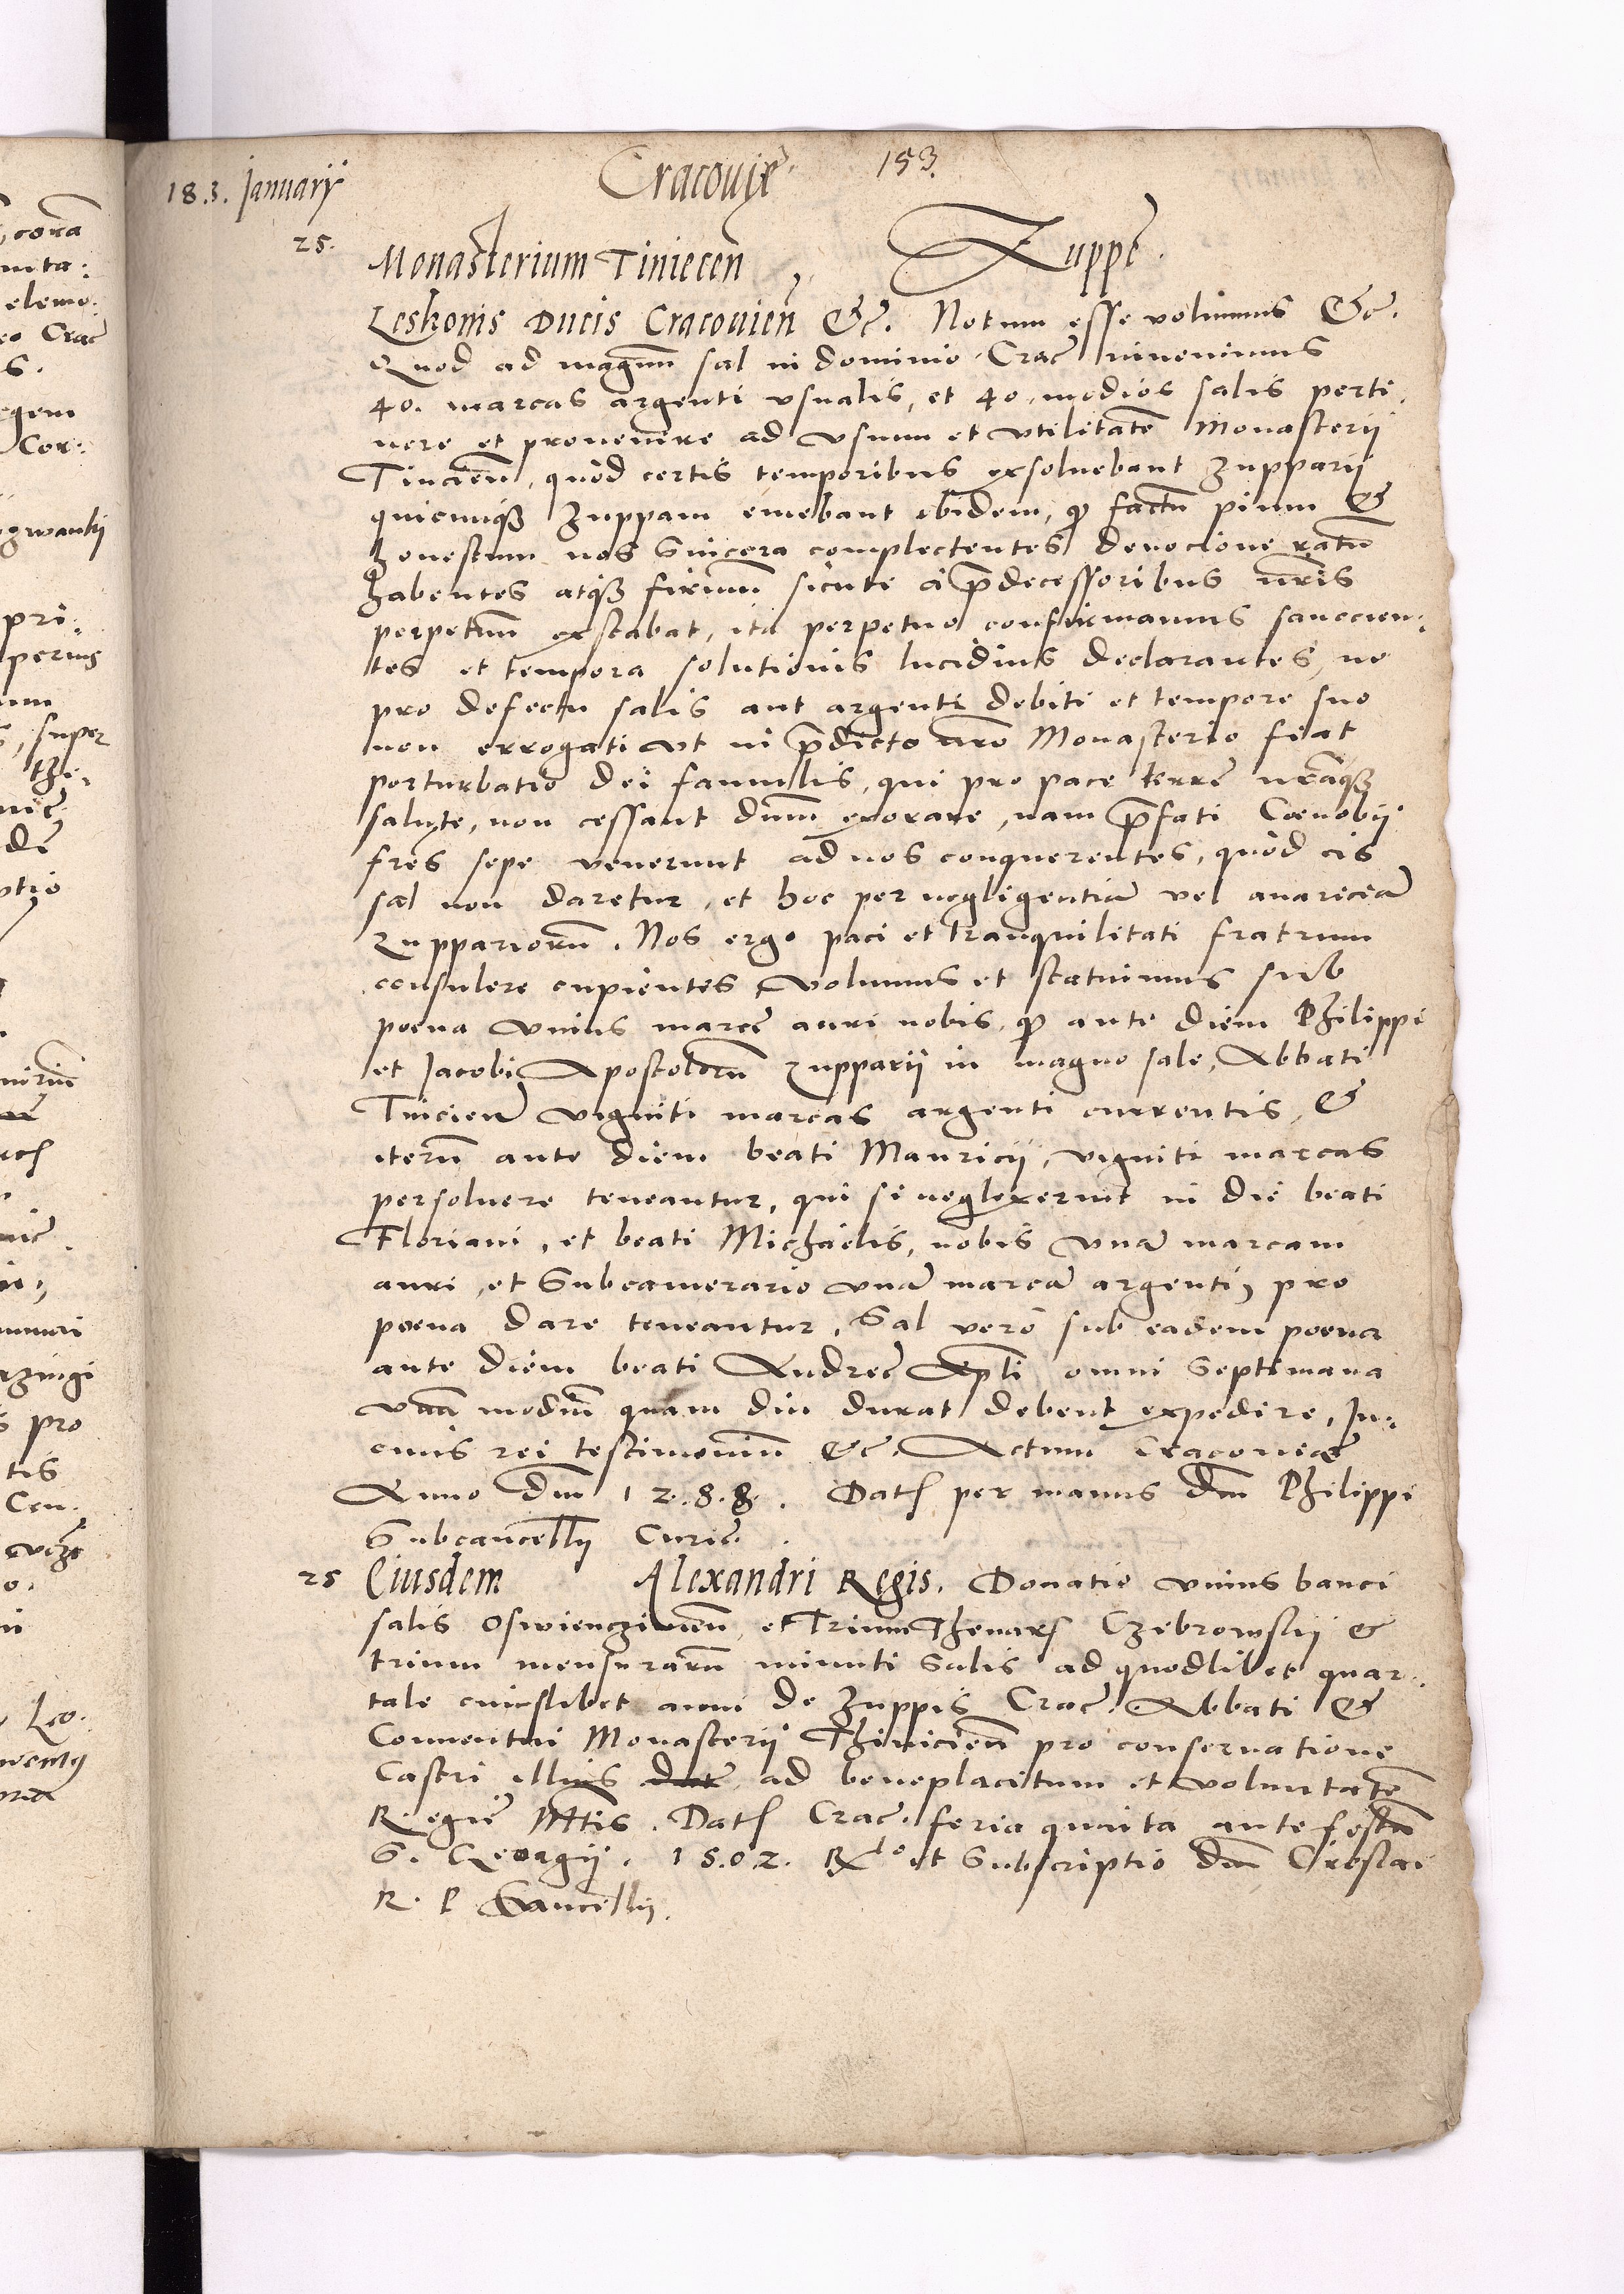 18.3. Januarÿ
Cracouiæ
153.
25.
Monasterium Tiniecen̄
Zuppę.
Leskonis Ducis Cracouien̄ &c. Notum esse volumus &c.
Quod ad magnū sal in dominio Crac̄ inuenimus
40. marcas argenti vsualis, et 40. modios salis perti,
nere et prouenire ad vsum et vtilitatē Monasterij
Tinecien̄, quòd certis temporibus exsoluebant Zupparij
quicunq3 Zuppam emebant ibidem, qd factū pium &
honestum nos Sincera complectentes deuocione ratū
habentes atq3 firmum sicuti à p̄decessoribus nr̄is
perpetuū exstabat, ita perpetuo confirmamus sanccien:
tes et tempora solutionis lucidius declarantes, ne
pro defectu salis aut argenti debiti et tempore suo
non errogati vt in p̄dicto nr̄o Monasterio fiat
porturbatio dei famulis, qui pro pace terrę nr̄aq3
salute, non cessant dnm̄ exorare, nam p̄fati Cœnobij
fr̄es sepe venerunt ad nos conquerentes, quòd eis
sal non daretur, et hoc per negligentiā vel auariciā
zuppariorū. Nos ergo paci et tranquilitati fratrum
consulere cupientes volumus et statuimus sub
poena vnius marcę auri nobis, qd ante diem Philippi
et Jacobi Apostolorū zupparij in magno sale, Abbati
Tinicien̄ viginti marcas argenti currentis, &
iterū ante diem beati Mauricij, viginti marcas
persoluere teneantur, qui si neglexerint in die beati
Floriani, et beati Michaelis, nobis vnā marcam
auri, et Subcamerario vnā marcā argenti, pro
poena dare teneantur. Sal verò sub eadem poena
ante diem beati Andreę Ap̄li omni Septimana
vnū modiū quam diu durat debent expedire. In,
cuius rei testimoniū &c. Actum Cracouiæ
Anno Dni 1 2.8.8. Dat per manus Dni Philippi
Subcancell̄ij Curię.
25 Eiusdem Alexandri Regis. Donatio vnius banci
salis Oswiencimen̄, et Trium Thenar Czebrowskij &
trium mensurarū minuti Salis ad quodlibet quar,
tale cuiuslibet anni de Zuppis Crac̄. Abbati &
Conuentui Monasterij Thinicien̄ pro conseruatione
Castri illius dat, ad beneplacitum et voluntatē
Regię Mtis. Dat Crac. feria quinta ante festū
S. Georgij. 1 5.0.2. Rlo et Subscriptio dni Creslai
R. P Cancell̄ij.